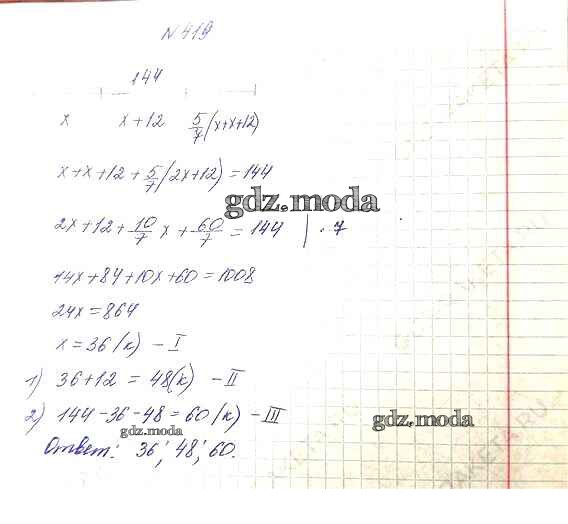 N 419
144
x   x + 12   5/7(x+x+12)
x + x + 12 + 5/7(2x+12) = 144
gdz.moda
2x + 12 + 10/7 x + 60/7 = 144 | · 7
14x + 84 + 10x + 60 = 1008
24x = 864
x = 36 (к) – I
1) 36 + 12 = 48 (к) – II
2) 144 – 36 – 48 = 60 (к) – III
gdz.moda
gdz.moda
Ответ: 36; 48; 60.